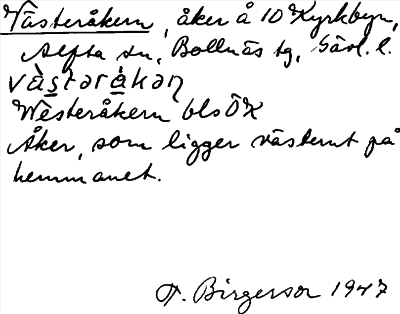 Västeråkern, åker å 10 Kyrkbyn,
Alfta sn, Bollnäs tg, Gävl. l.
væ̀staråkaɳ
Westeråkern bls ÖK
Åker, som ligger västerut på
hemmanet.
F. Birgerson 1947